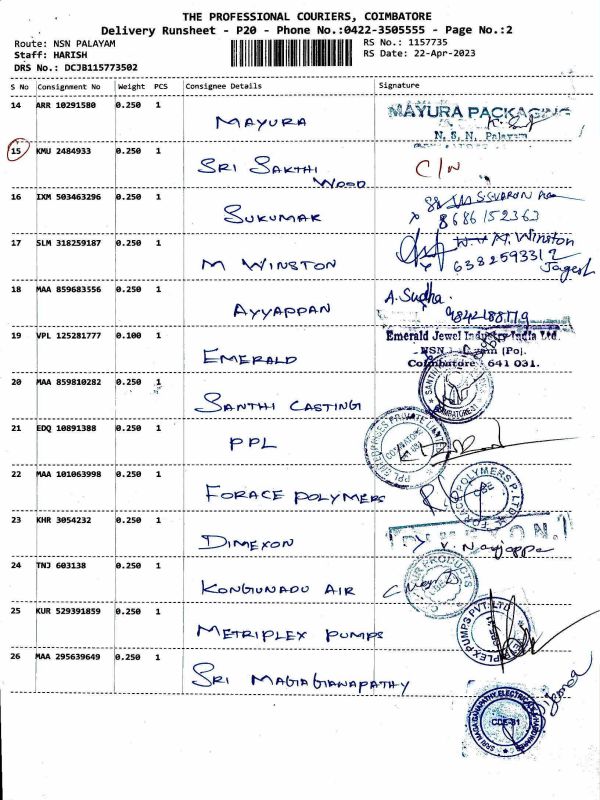 THE PROFESSIONAL COURIERS, COIMBATORE
Delivery Runsheet - P20 - Phone No.:0422-3505555 - Page No.:2
Route: NSN PALAYAM
RS No.: 1157735
Staff: HARISH
RS Date: 22-Apr-2023
DRS No.: DCJB115773502
S No Consignment No Weight PCS Consignee Details Signature
14 ARR 10291580 0.250 1 MAYURA MAYURA PACKAGING
N. S. N. Palayam
15 KMU 2484933 0.250 1 SRI SAKTHI WOOD C/N
16 IXM 503463296 0.250 1 SUKUMAR
8686152363
17 SLM 318259187 0.250 1 M WINSTON M. Winston
6382593312
Jagesh
18 MAA 859683556 0.250 1 AYYAPPAN A. Sudha
9842188779
19 VPL 125281777 0.100 1 EMERALD Emerald Jewel Industry India Ltd.
NSN Palayam [Po].
Coimbatore - 641 031.
20 MAA 859810282 0.250 1 SANTHI CASTING
COIMBATORE-31
21 EDQ 10891388 0.250 1 PPL PPL ENTERPRISES PRIVATE LIMITED
22 MAA 101063998 0.250 1 FORACE POLYMERS FORACE POLYMERS P. LTD
CBE
23 KHR 3054232 0.250 1 DIMEXON
V. Nanjappa
24 TNJ 603138 0.250 1 KONGUNADU AIR AIR PRODUCTS
25 KUR 529391859 0.250 1 METRIPLEX PUMPS METRIPLEX PUMPS PVT. LTD
26 MAA 295639649 0.250 1 SRI MAGAGANAPATHY
CBE-31